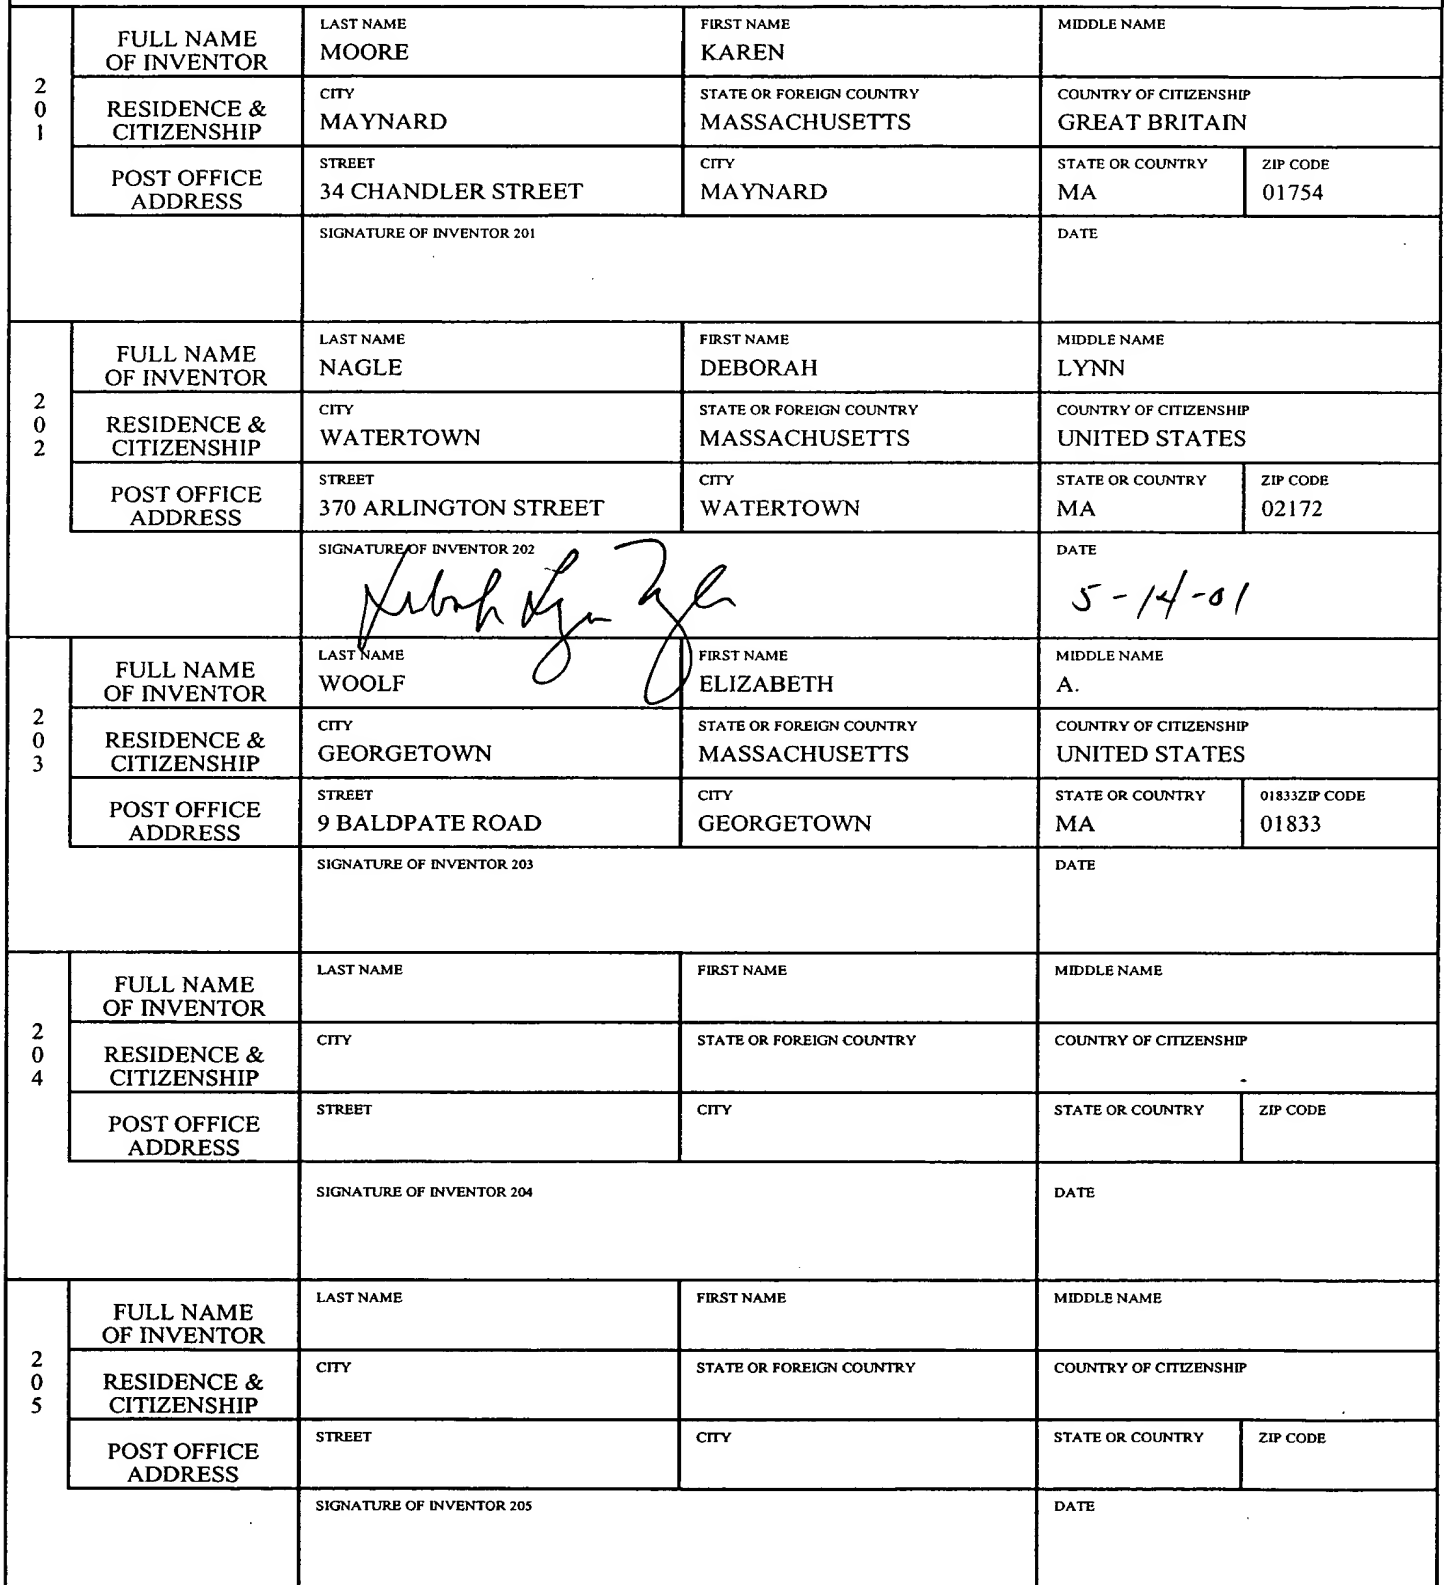 201
FULL NAME OF INVENTOR
LAST NAME
MOORE
FIRST NAME
KAREN
MIDDLE NAME
RESIDENCE & CITIZENSHIP
CITY
MAYNARD
STATE OR FOREIGN COUNTRY
MASSACHUSETTS
COUNTRY OF CITIZENSHIP
GREAT BRITAIN
POST OFFICE ADDRESS
STREET
34 CHANDLER STREET
CITY
MAYNARD
STATE OR COUNTRY
MA
ZIP CODE
01754
SIGNATURE OF INVENTOR 201
DATE
202
FULL NAME OF INVENTOR
LAST NAME
NAGLE
FIRST NAME
DEBORAH
MIDDLE NAME
LYNN
RESIDENCE & CITIZENSHIP
CITY
WATERTOWN
STATE OR FOREIGN COUNTRY
MASSACHUSETTS
COUNTRY OF CITIZENSHIP
UNITED STATES
POST OFFICE ADDRESS
STREET
370 ARLINGTON STREET
CITY
WATERTOWN
STATE OR COUNTRY
MA
ZIP CODE
02172
SIGNATURE OF INVENTOR 202
Deborah Lynn Nagle
DATE
5-14-01
203
FULL NAME OF INVENTOR
LAST NAME
WOOLF
FIRST NAME
ELIZABETH
MIDDLE NAME
A.
RESIDENCE & CITIZENSHIP
CITY
GEORGETOWN
STATE OR FOREIGN COUNTRY
MASSACHUSETTS
COUNTRY OF CITIZENSHIP
UNITED STATES
POST OFFICE ADDRESS
STREET
9 BALDPATE ROAD
CITY
GEORGETOWN
STATE OR COUNTRY
MA
01833ZIP CODE
01833
SIGNATURE OF INVENTOR 203
DATE
204
FULL NAME OF INVENTOR
LAST NAME
FIRST NAME
MIDDLE NAME
RESIDENCE & CITIZENSHIP
CITY
STATE OR FOREIGN COUNTRY
COUNTRY OF CITIZENSHIP
POST OFFICE ADDRESS
STREET
CITY
STATE OR COUNTRY
ZIP CODE
SIGNATURE OF INVENTOR 204
DATE
205
FULL NAME OF INVENTOR
LAST NAME
FIRST NAME
MIDDLE NAME
RESIDENCE & CITIZENSHIP
CITY
STATE OR FOREIGN COUNTRY
COUNTRY OF CITIZENSHIP
POST OFFICE ADDRESS
STREET
CITY
STATE OR COUNTRY
ZIP CODE
SIGNATURE OF INVENTOR 205
DATE